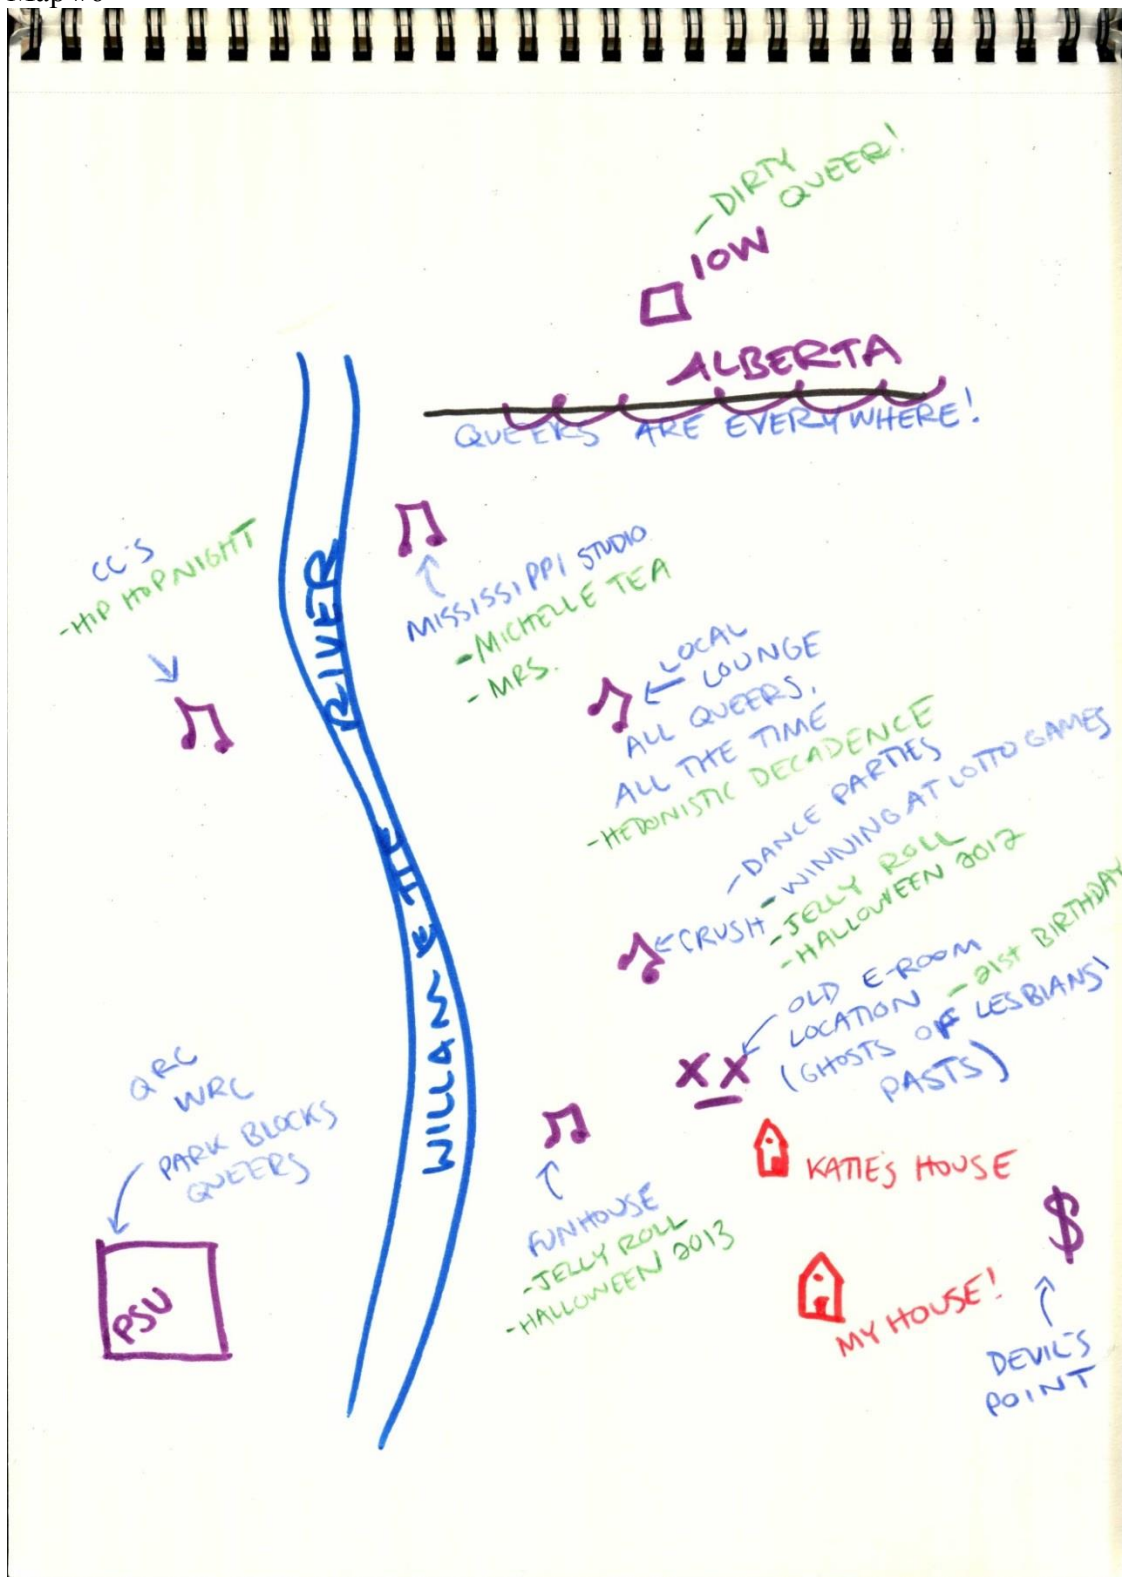 - DIRTY
QUEER!
IOW
ALBERTA
QUEERS ARE EVERYWHERE!
CC'S
- HIP HOP NIGHT
MISSISSIPPI STUDIO
- MICHELLE TEA
- MRS.
LOCAL
LOUNGE
ALL QUEERS,
ALL THE TIME
- HEDONISTIC DECADENCE
CRUSH
- DANCE PARTIES
- WINNING AT LOTTO GAMES
- JELLY ROLL
- HALLOWEEN 2012
OLD E-ROOM
LOCATION
- 21st BIRTHDAY
(GHOSTS OF LESBIANS
PASTS)
X X
WILLAMETTE RIVER
QRC
WRC
PARK BLOCKS
QUEERS
PSU
FUNHOUSE
- JELLY ROLL
- HALLOWEEN 2013
KATIE'S HOUSE
MY HOUSE!
$
DEVIL'S
POINT